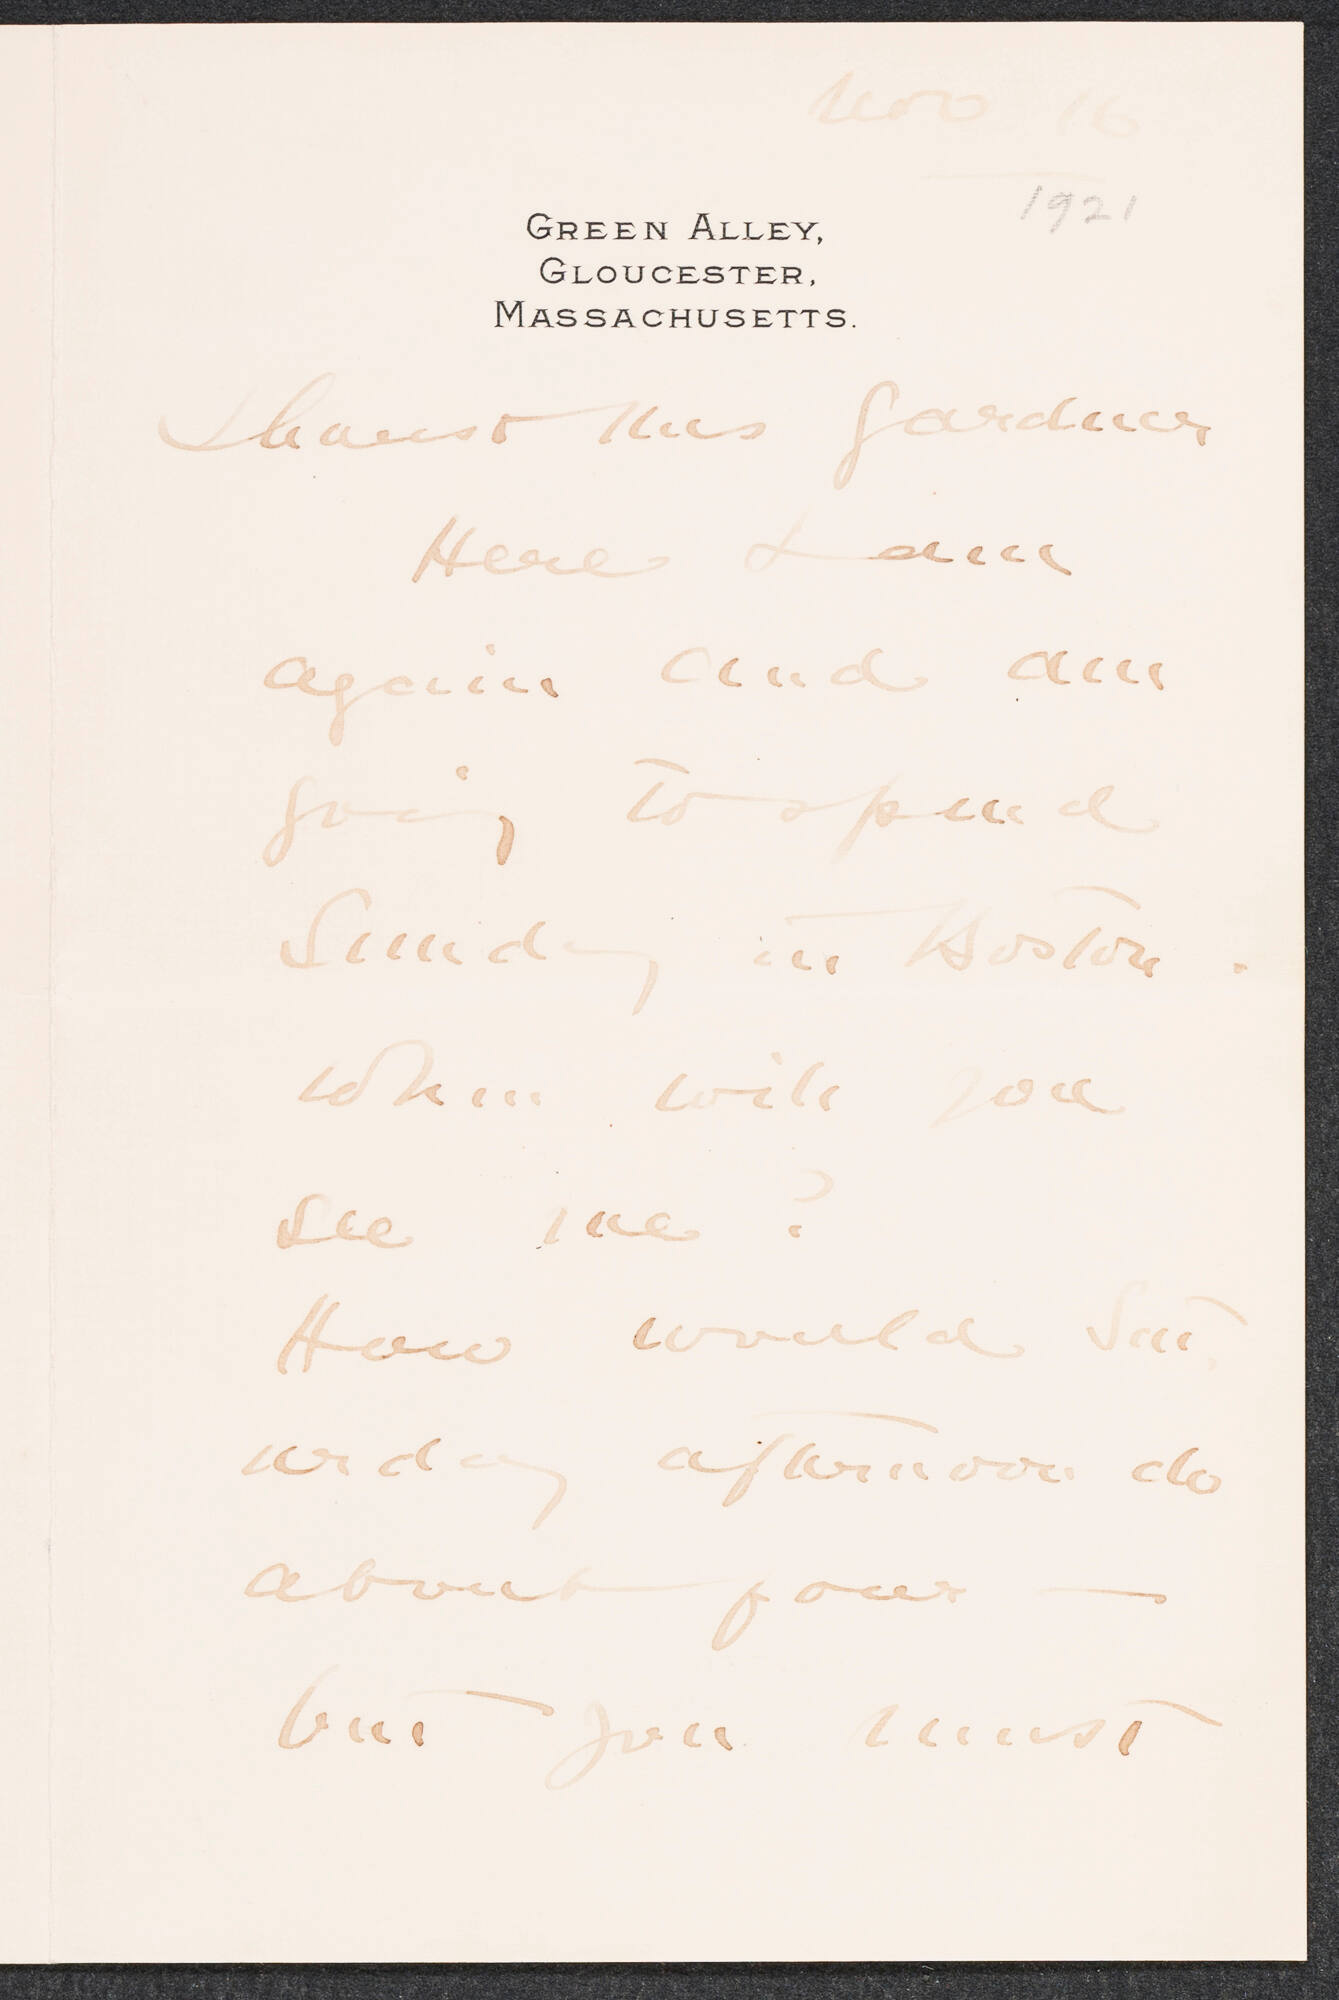 Nov 16
1921
GREEN ALLEY,
GLOUCESTER,
MASSACHUSETTS.
Mrs Gardner
Here I am
again and am
going to spend
Sunday in Boston.
When will you
see me?
How would Sat
urday afternoon do
about four —
but you must